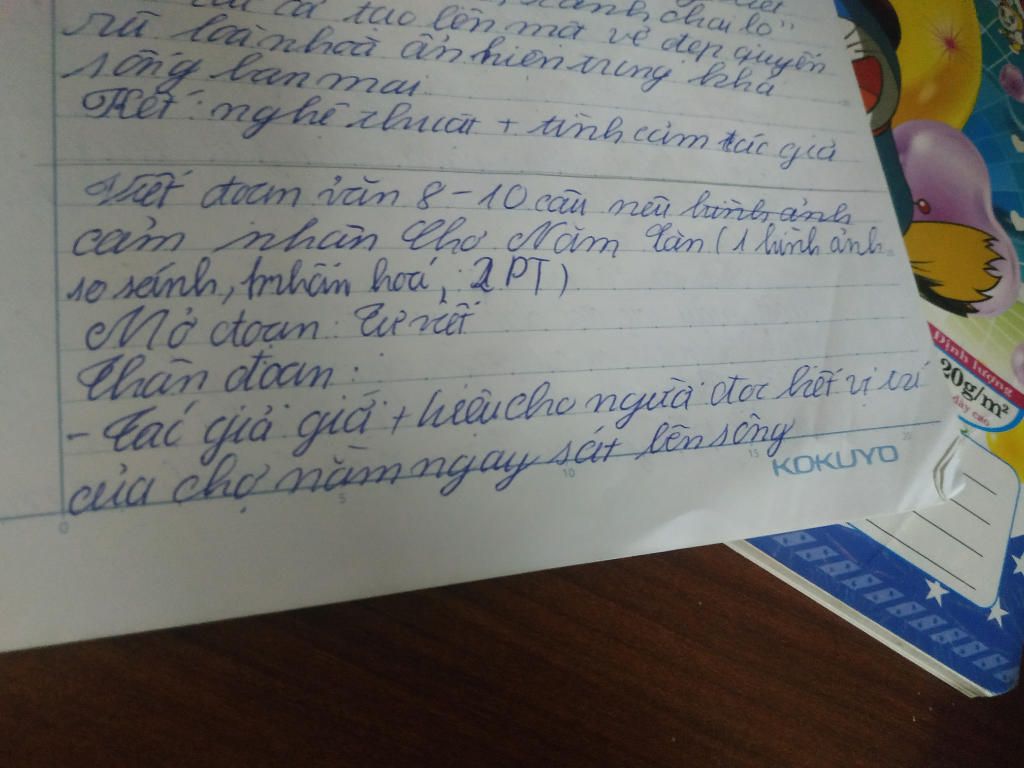 tạo lên mà vẻ đẹp quyến
rũ loà nhoà ẩn hiện trung khá
sông ban mai
Kết: nghệ thuật + tình cảm tác giả
Viết đoạn văn 8-10 câu nêu hình ảnh
cảm nhận Chợ Năm Căn (1 hình ảnh
so sánh, 1 nhân hoá, 2 PT)
Mở đoạn: Tự viết
Thân đoạn:
- Tác giả giới + hiệu cho người đọc biết vị trí
của chợ nằm ngay sát bên sông
0 5 10 15 20
KOKUYO
Định lượng
20g/m²